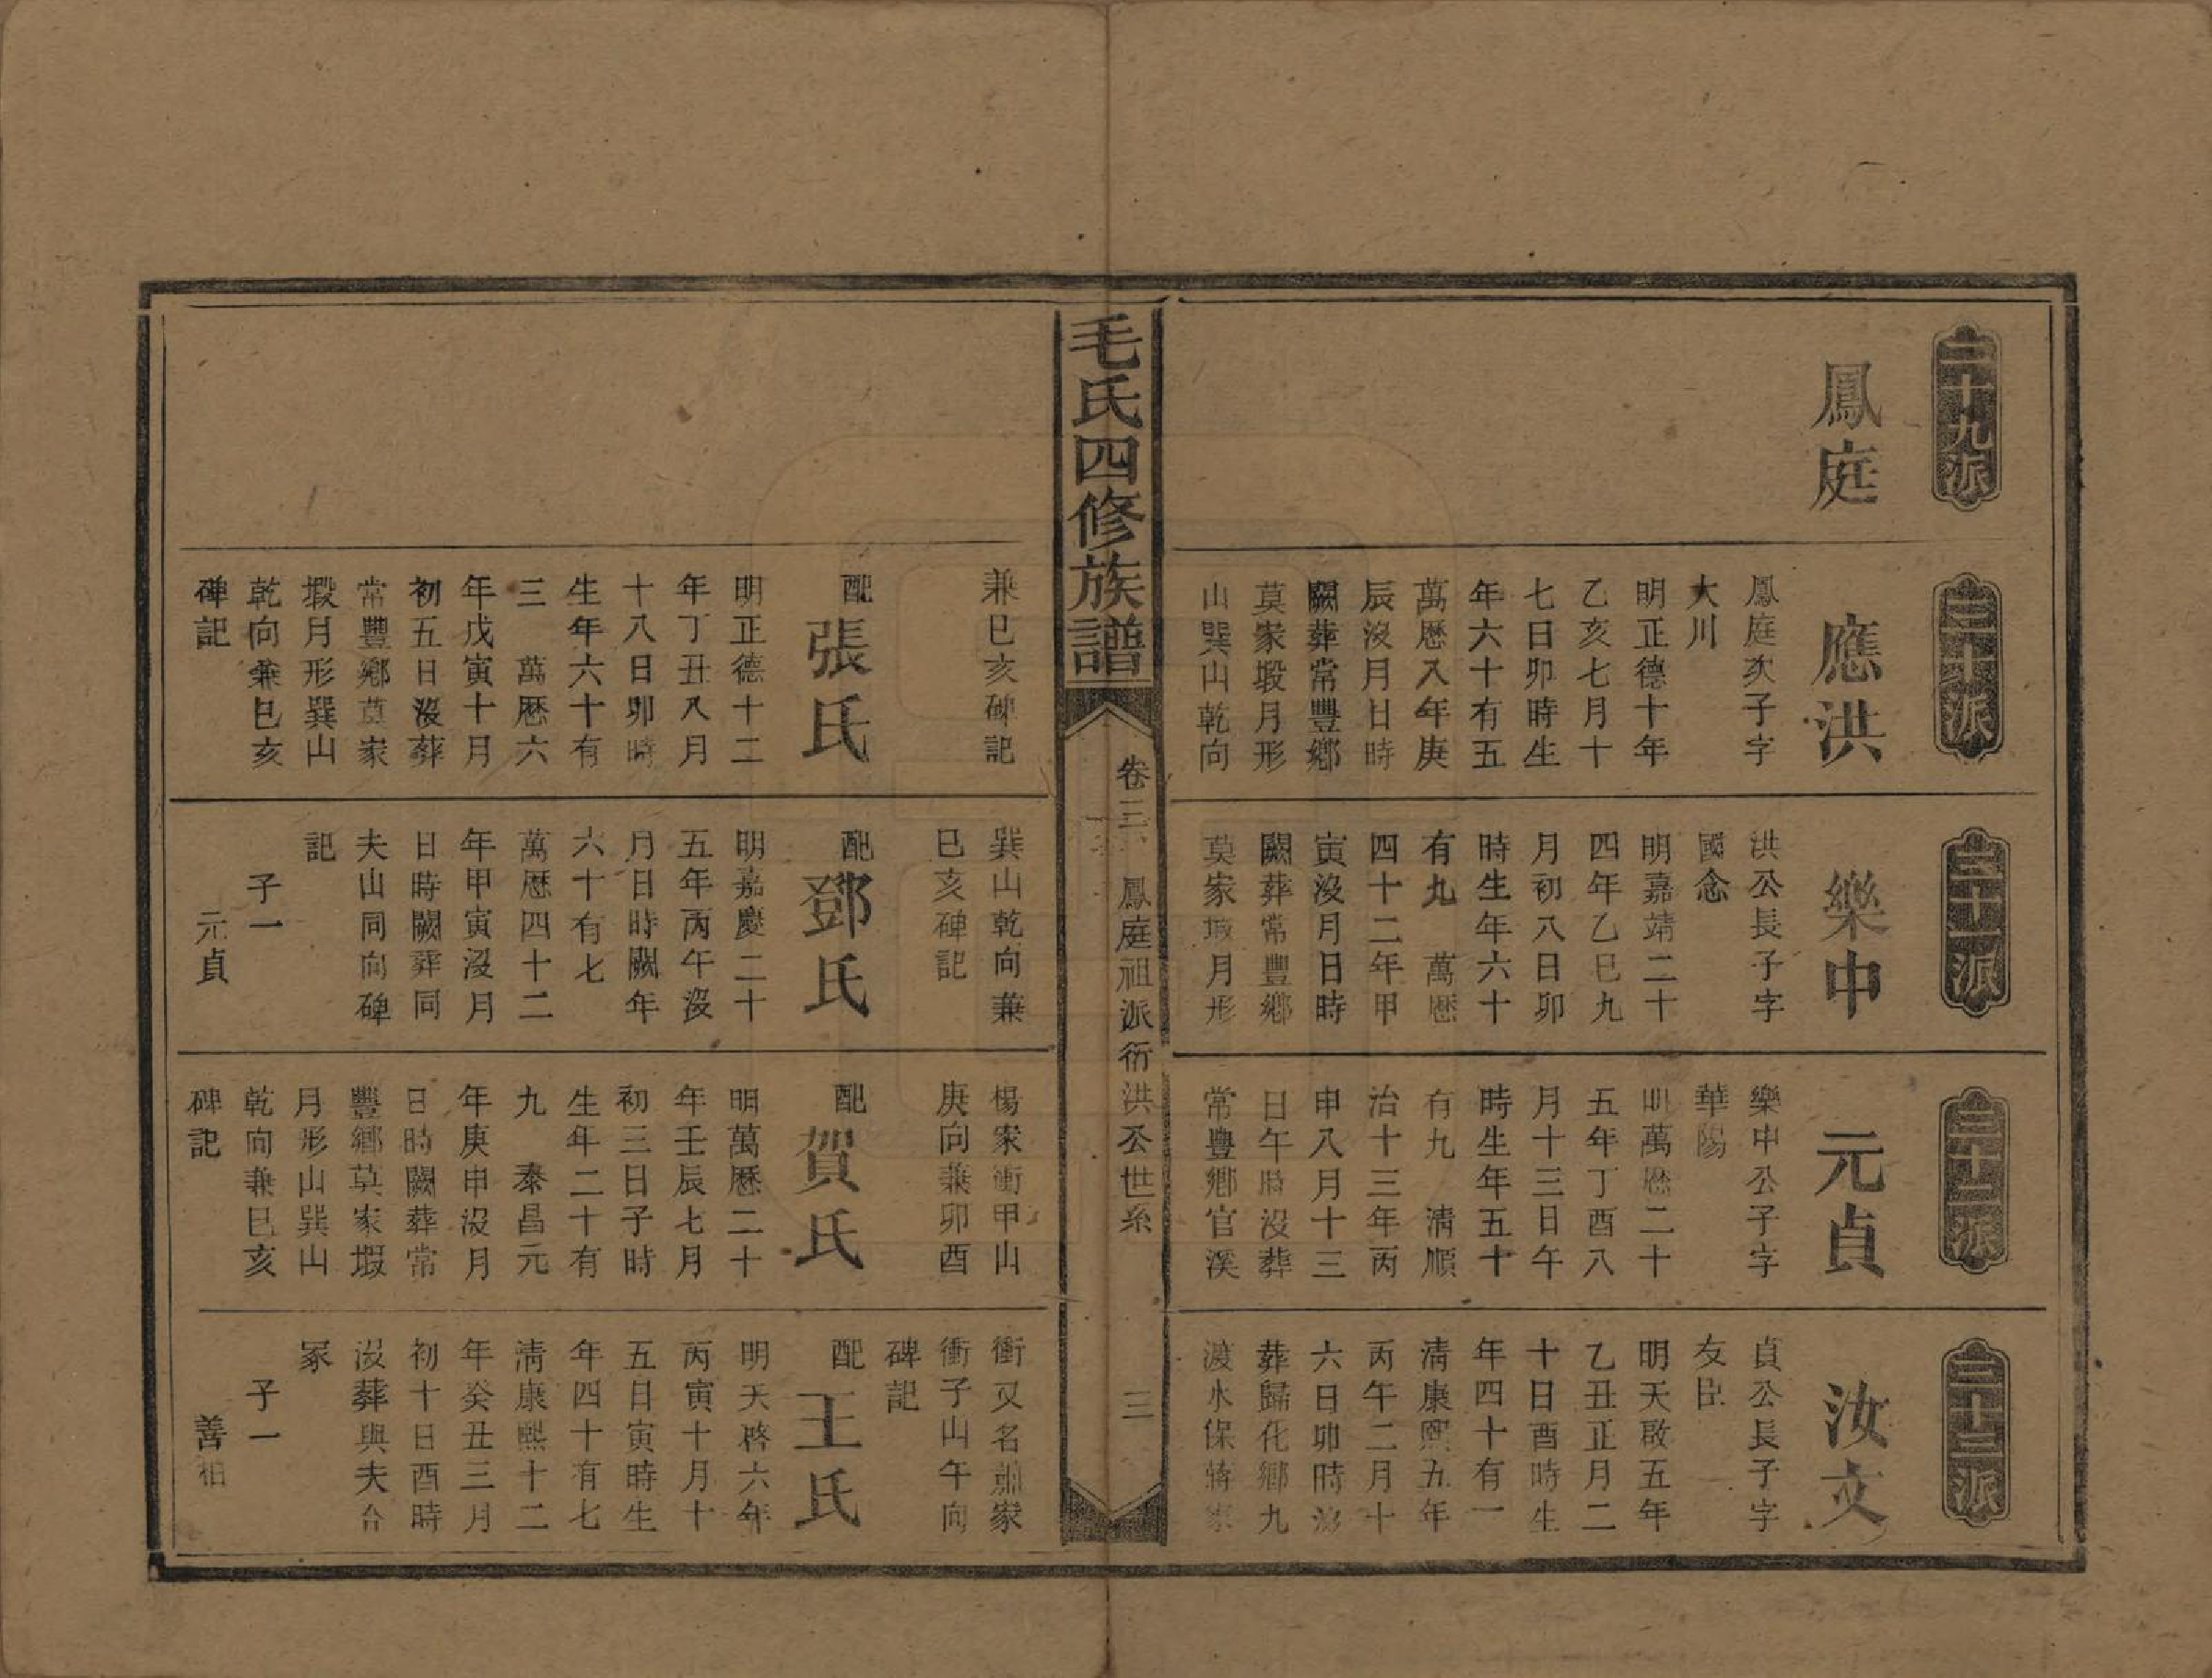 二十九派
鳳庭
三十派
應洪
鳳庭次子字
大川
明正德十年
乙亥七月十
七日卯時生
年六十有五
萬歷八年庚
辰沒月日時
闕葬常豐鄉
莫家塅月形
山巽山乾向
兼巳亥碑記
配張氏
明正德十二
年丁丑八月
十八日卯時
生年六十有
三 萬歷六
年戊寅十月
初五日沒葬
常豐鄉莫家
塅月形巽山
乾向兼巳亥
碑記
三十一派
樂中
洪公長子字
國念
明嘉靖二十
四年乙巳九
月初八日卯
時生年六十
有九 萬歷
四十二年甲
寅沒月日時
闕葬常豐鄉
莫家塅月形
巽山乾向兼
巳亥碑記
配鄧氏
明嘉慶二十
五年丙午沒
月日時闕年
六十有七
萬歷四十二
年甲寅沒月
日時闕葬同
夫山同向碑
記
子一
元貞
三十二派
元貞
樂中公子字
華陽
明萬歷二十
五年丁酉八
月十三日午
時生年五十
有九 清順
治十三年丙
申八月十三
日午時沒葬
常豐鄉官溪
楊家衝甲山
庚向兼卯酉
配賀氏
明萬歷二十
年壬辰七月
初三日子時
生年二十有
九 泰昌元
年庚申沒月
日時闕葬常
豐鄉莫家塅
月形山巽山
乾向兼巳亥
碑記
三十三派
汝文
貞公長子字
友臣
明天啟五年
乙丑正月二
十日酉時生
年四十有一
清康熙五年
丙午二月十
六日卯時沒
葬歸化鄉九
渡水保蔣家
衝又名蕭家
衝子山午向
碑記
配王氏
明天啓六年
丙寅十月十
五日寅時生
年四十有七
清康熙十二
年癸丑三月
初十日酉時
沒葬與夫合
冢
子一
善相
毛氏四修族譜
卷三 鳳庭祖派衍洪公世系
三